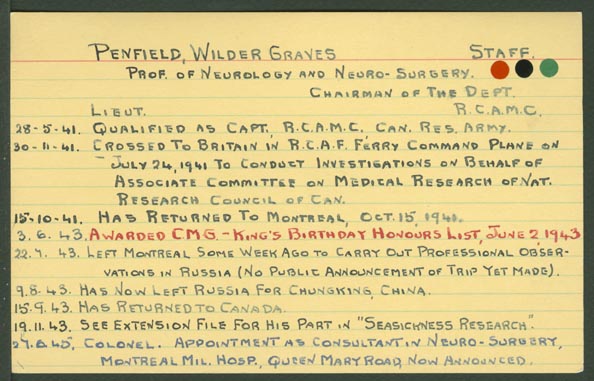 PENFIELD, WILDER GRAVES STAFF.
PROF. OF NEUROLOGY AND NEURO-SURGERY.
CHAIRMAN OF THE DEPT.
LIEUT. R.C.A.M.C.
28-5-41. QUALIFIED AS CAPT., R.C.A.M.C., CAN. RES. ARMY.
30-11-41. CROSSED TO BRITAIN IN R.C.A.F. FERRY COMMAND PLANE ON
JULY 24, 1941 TO CONDUCT INVESTIGATIONS ON BEHALF OF
ASSOCIATE COMMITTEE ON MEDICAL RESEARCH OF NAT.
RESEARCH COUNCIL OF CAN.
15-10-41. HAS RETURNED TO MONTREAL, OCT. 15, 1941.
3. 6. 43. AWARDED CMG. - KING'S BIRTHDAY HONOURS LIST, JUNE 2, 1943
22.7. 43. LEFT MONTREAL SOME WEEK AGO TO CARRY OUT PROFESSIONAL OBSER-
VATIONS IN RUSSIA (NO PUBLIC ANNOUNCEMENT OF TRIP YET MADE).
9.8.43. HAS NOW LEFT RUSSIA FOR CHUNGKING, CHINA.
15.9.43. HAS RETURNED TO CANADA.
19.11.43. SEE EXTENSION FILE FOR HIS PART IN "SEASICKNESS RESEARCH".
COLONEL. APPOINTMENT AS CONSULTANT IN NEURO-SURGERY,
MONTREAL MIL. HOSP., QUEEN MARY ROAD, NOW ANNOUNCED.